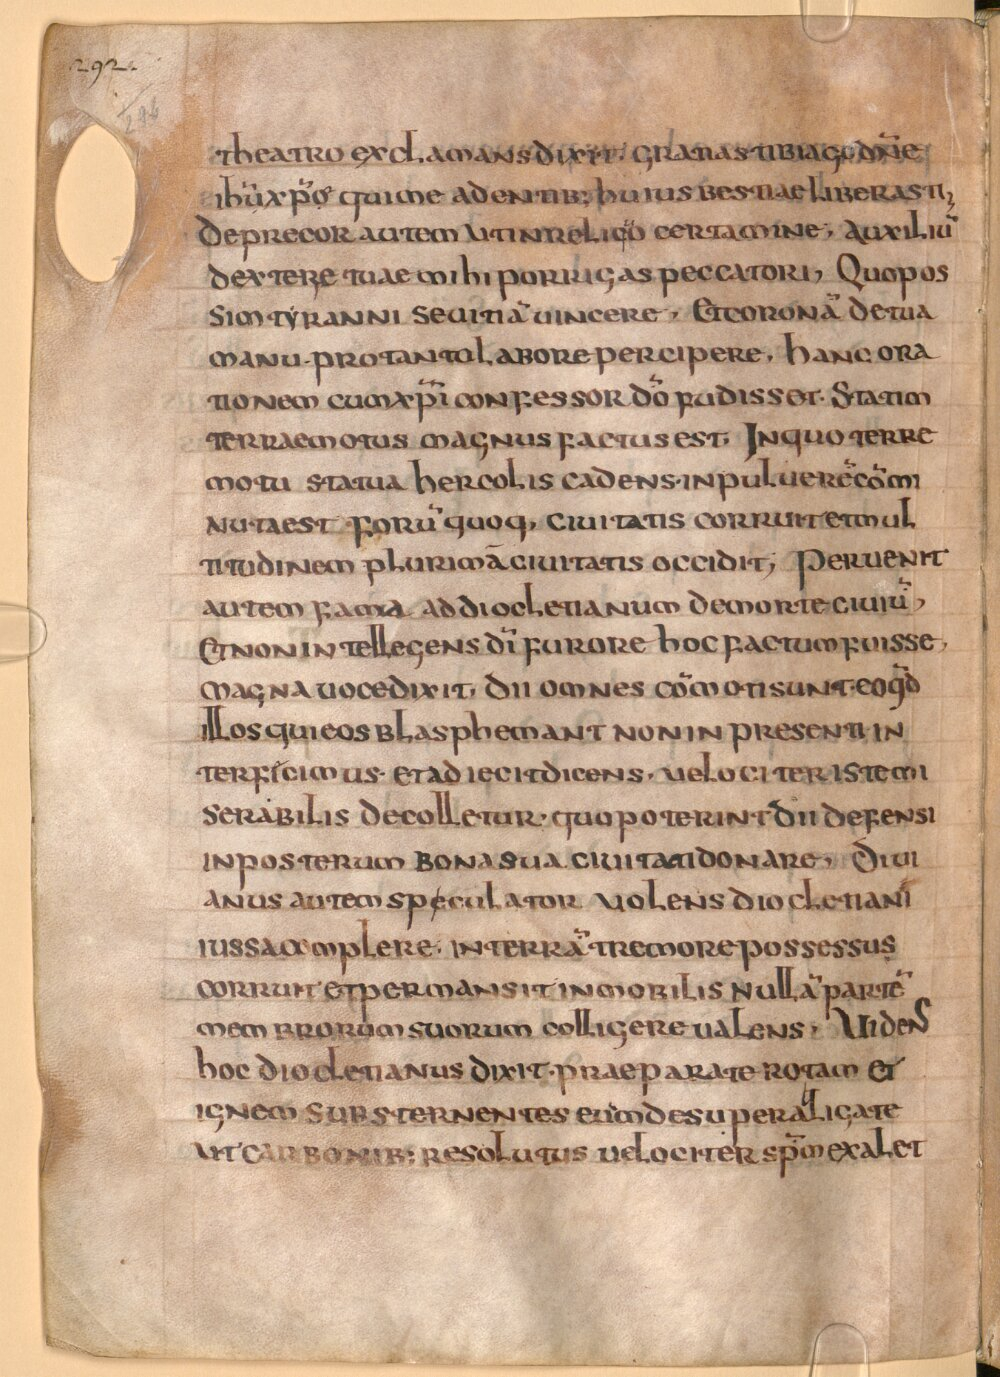 292.
294
theatro exclamans dixit; gratias tibi ago dn̄e
ihū xp̄ε qui me a dentib; huius bestiae liberasti,
deprecor autem ut in reliquo certamine, auxiliū
dextere tuae mihi porrigas peccatori, Quo pos
sim tyranni sevitiā vincere, Et coronā de tua
manu pro tanto labore percipere, hanc ora
tionem cum xp̄i confessor dō fudisset. Statim
terraemotus magnus factus est. In quo terre
motu statua hercolis cadens in pulverē cōmi
nuta est forū quoq, civitatis corruit et mul
titudinem plurimā civitatis occidit; Pervenit
autem fama ad diocletianum de morte civiū,
Et non intellegens dī furore hoc factum fuisse,
magna voce dixit, dii omnes cōmoti sunt eo qd̄
illos qui eos blasphemant non in presenti in
terficimus. et adiecit dicens, velociter iste mi
serabilis decolletur, quo poterint dii defensi
in posterum bona sua civitati donare, Divi
anus autem speculator volens diocletiani
iussa complere, in terrā tremore possessus
corruit et permansit inmobilis nullā partē
membrorum suorum colligere valens, Videns
hoc diocletianus dixit. praeparate rotam et
ignem substernentes eum desuper alligate
ut carbonib; resolutus velociter sp̄m exalet